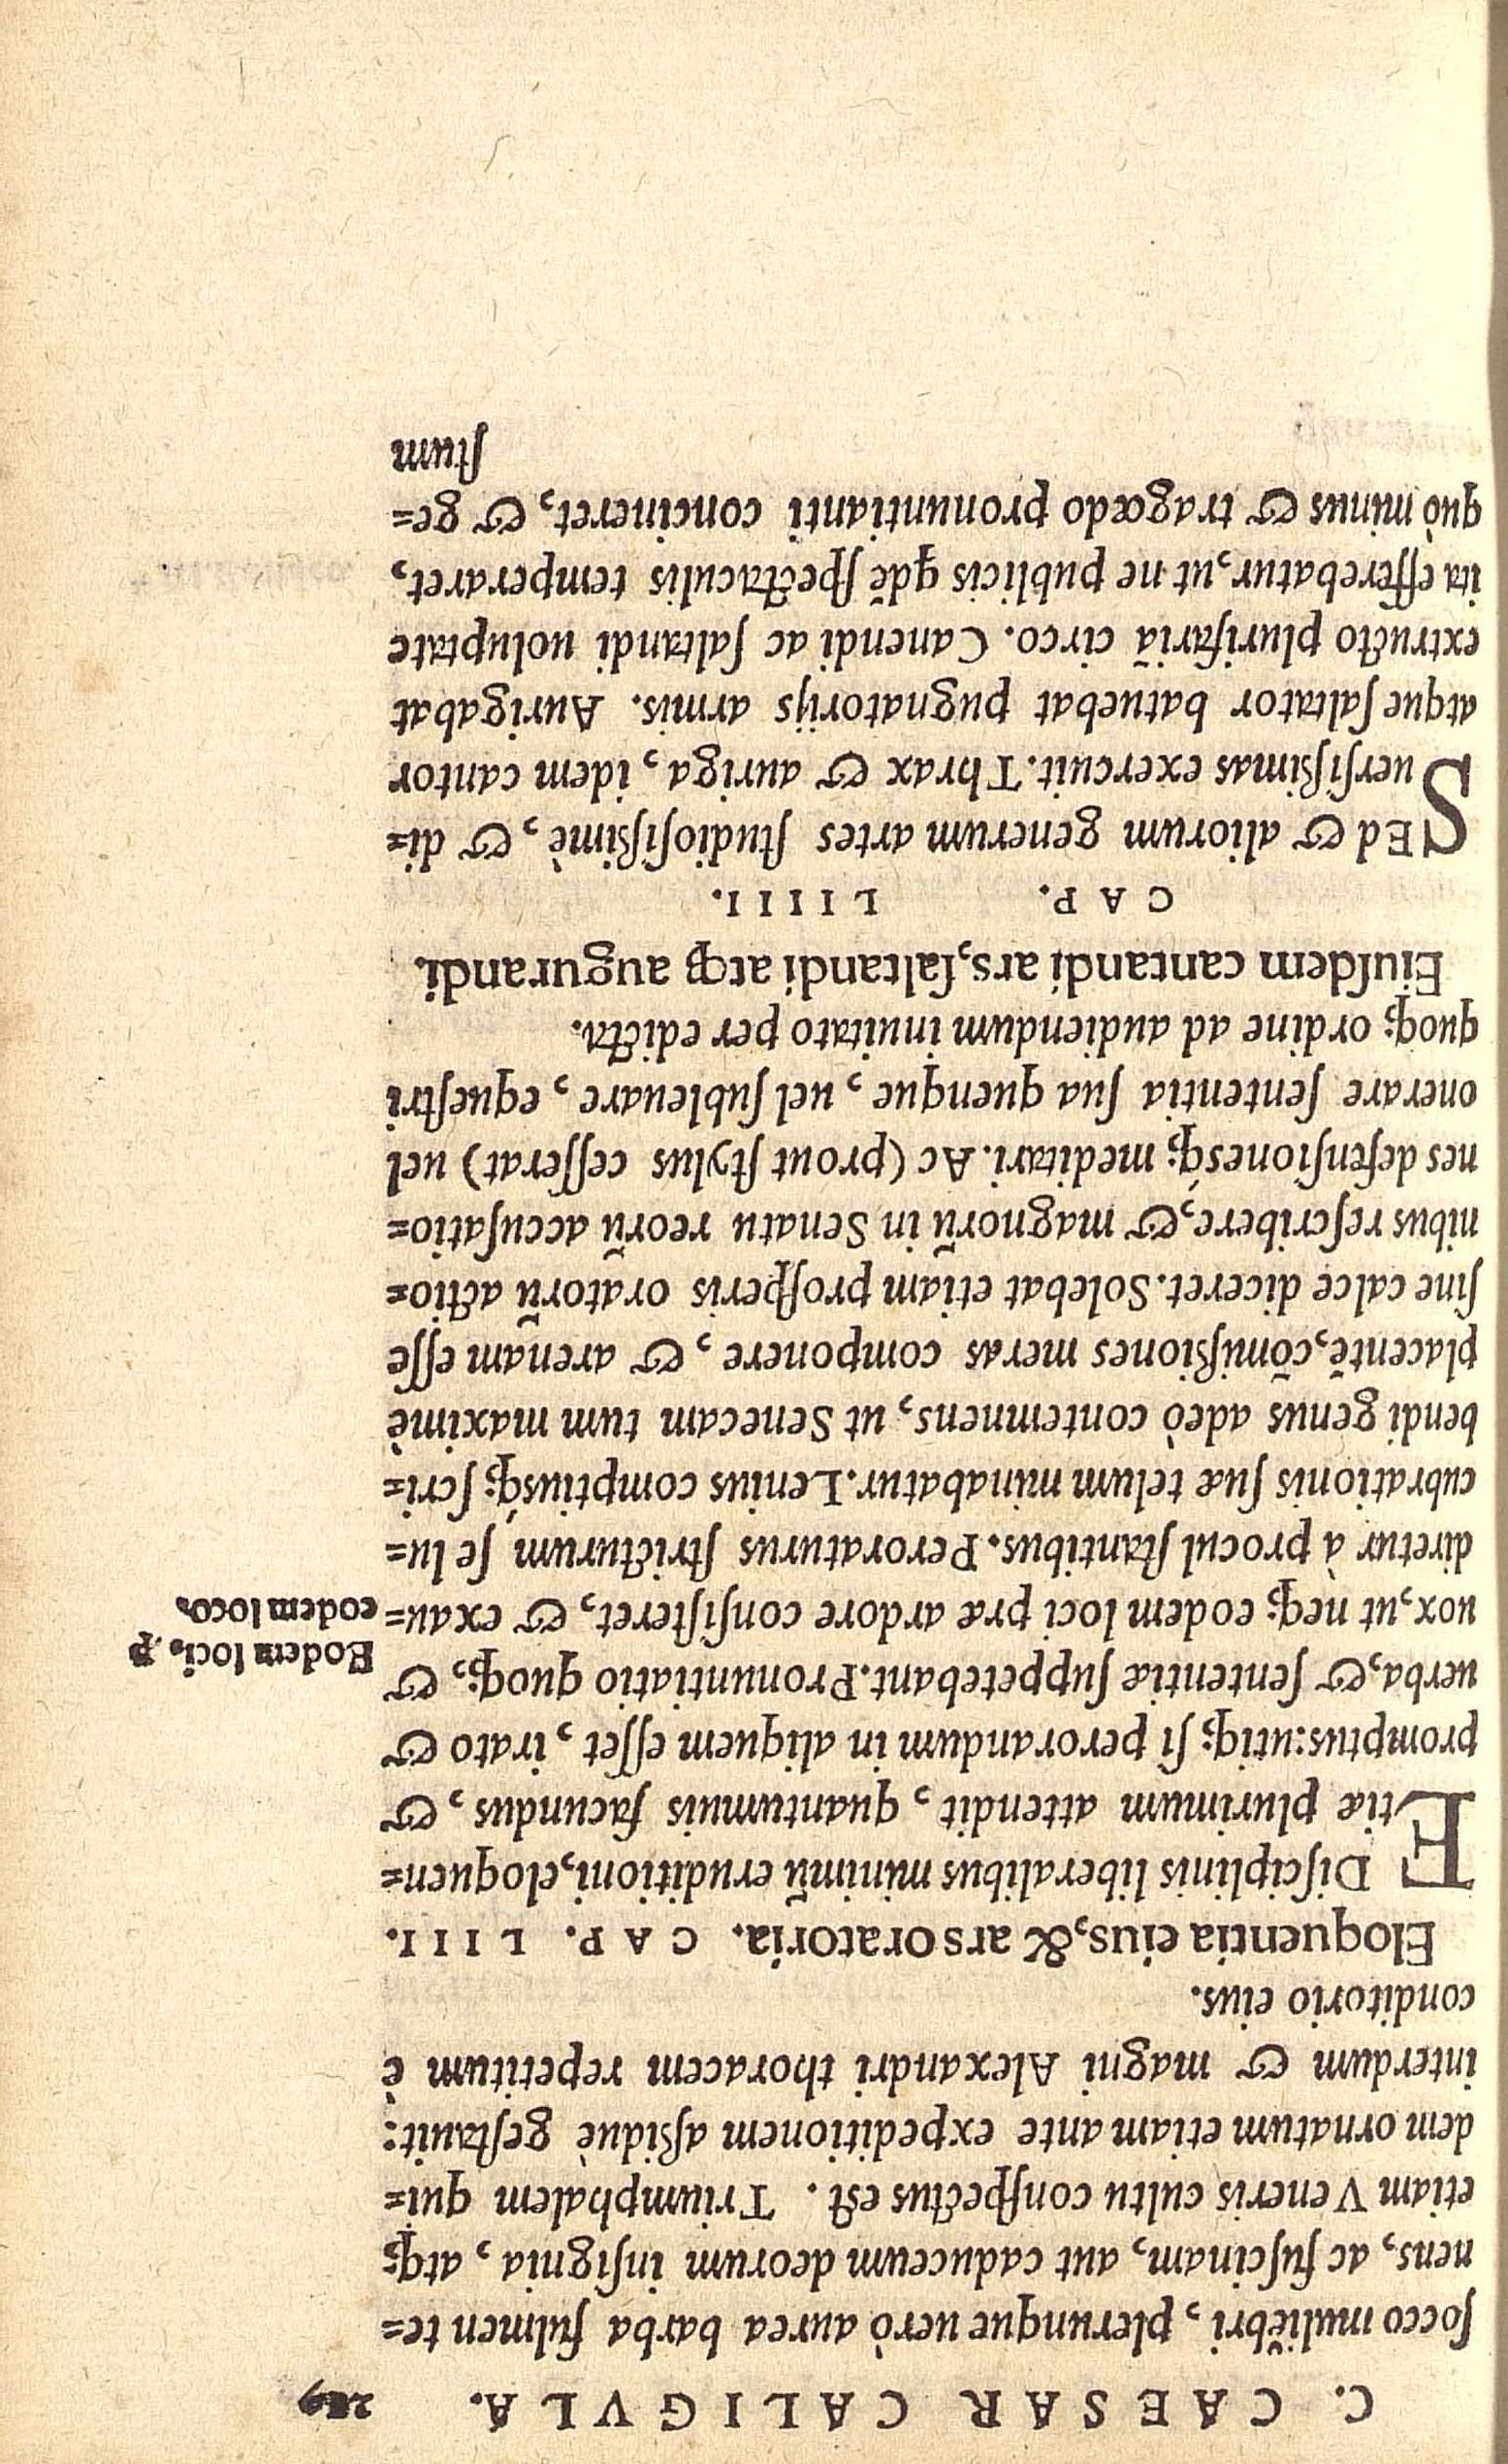 C. CAESAR CALIGVLA. 289
ſocco muliebri, plerunque uerò aurea barba fulmen te=
nens, ac fuſcinam, aut caduceum deorum inſignia, atq;
etiam Veneris cultu conſpectus eſt. Triumphalem qui=
dem ornatum etiam ante expeditionem aßiduè geſtauit:
interdum & magni Alexandri thoracem repetitum è
conditorio eius.
Eloquentia eius, & ars oratoria. CAP. LIII.
E Diſciplinis liberalibus minimũ eruditioni, eloquen=
tiæ plurimum attendit, quantumuis facundus, &
promptus: utiq; ſi perorandum in aliquem eſſet, irato &
uerba, & ſententiæ ſuppetebant. Pronuntiatio quoq;, &
uox, ut neq; eodem loci præ ardore conſiſteret, & exau=
diretur à procul ſtantibus. Peroraturus ſtricturum ſe lu=
cubrationis ſuæ telum minabatur. Lenius comptiusq́; ſcri=
bendi genus adeò contemnens, ut Senecam tum maximè
placentẽ, cõmißiones meras componere, & arenam eſſe
ſine calce diceret. Solebat etiam proſperis oratorũ actio=
nibus reſcribere, & magnorũ in Senatu reorũ accuſatio=
nes defenſionesq́; meditari. Ac (prout ſtylus ceſſerat) uel
onerare ſententia ſua quenque, uel ſubleuare, equeſtri
quoq; ordine ad audiendum inuitato per edicta.
Eiuſdem cantandi ars, ſaltandi atq; augurandi.
CAP. LIIII.
SEd & aliorum generum artes ſtudioſißimè, & di=
uerſißimas exercuit. Thrax & auriga, idem cantor
atque ſaltator batuebat pugnatorijs armis. Aurigabat
extructo plurifariã circo. Canendi ac ſaltandi uoluptate
ita efferebatur, ut ne publicis qdẽ ſpectaculis temperaret,
quò minus & tragœdo pronuntianti concineret, & ge=
ſtum
Eodem loci, p
eodem loco.